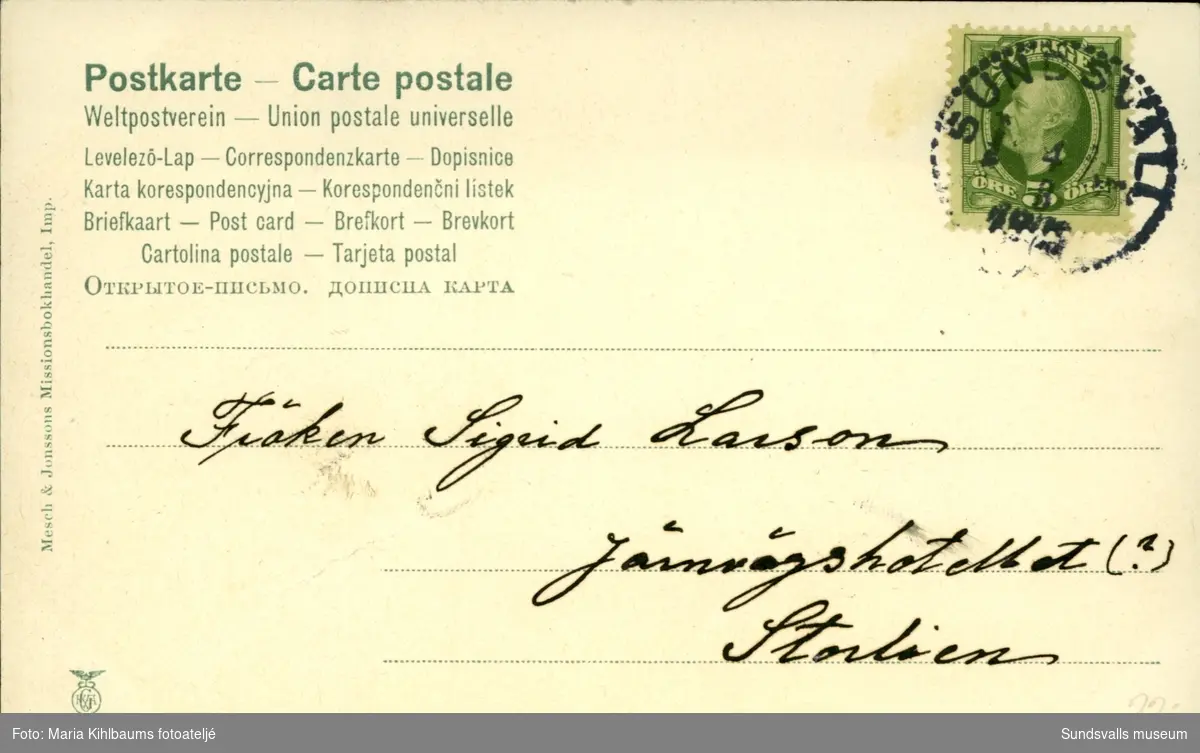 Postkarte — Carte postale
Weltpostverein — Union postale universelle
Levelező-Lap — Correspondenzkarte — Dopisnice
Karta korespondencyjna — Korespondenčni listek
Briefkaart — Post card — Brefkort — Brevkort
Cartolina postale — Tarjeta postal
Открытое-письмо. дописна карта
SUNDSVALL
4
ÖRE 5 ÖRE
Mesch & Jonssons Missionsbokhandel, Imp.
Fröken Sigrid Larson
Järnvägshotellet (?)
Storlien
Foto: Maria Kihlbaums fotoateljé
Sundsvalls museum